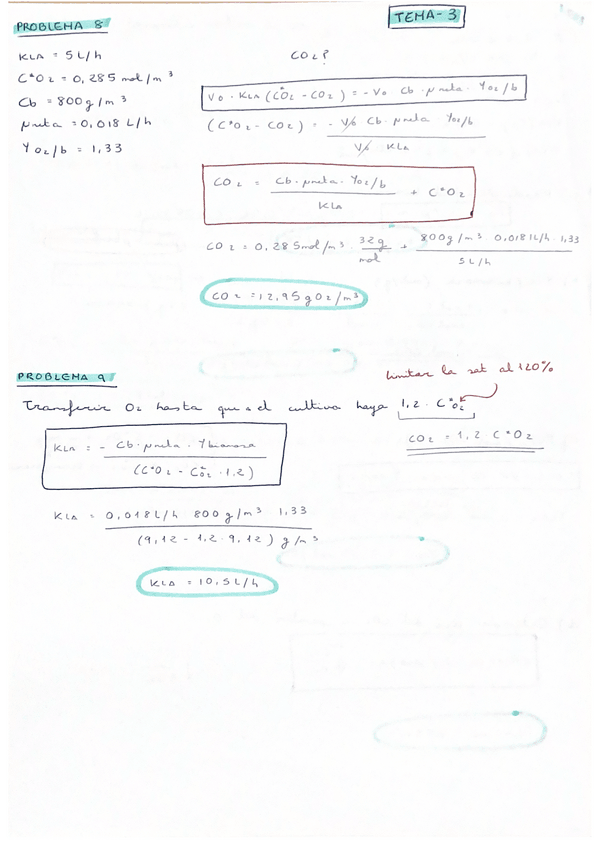 TEMA-3
PROBLEMA 8
KLA = 5 L/h
CO2?
C*O2 = 0,285 mol/m³
Cb = 800 g/m³
μneta = 0,018 L/h
YO2/b = 1,33
V0 · KLA (C*O2 - CO2) = - V0 Cb · μneta · YO2/b
(C*O2 - CO2) = - V0 Cb · μneta YO2/b
V0 KLA
CO2 = Cb · μneta · YO2/b + C*O2
KLA
CO2 = 0,285 mol/m³ · 32 g + 800 g/m³ 0,018 L/h · 1,33
mol 5 L/h
CO2 = 12,95 g O2/m³
PROBLEMA 9
limitar la sat al 120%
Transferir O2 hasta que el cultivo haya 1,2 · C*O2
CO2 = 1,2 C*O2
KLA = - Cb · μneta · Ybiomasa
(C*O2 - C*O2 · 1.2)
KLA = 0,018 L/h 800 g/m³ 1,33
(9,12 - 1,2 · 9,12) g/m³
KLA = 10,5 L/h